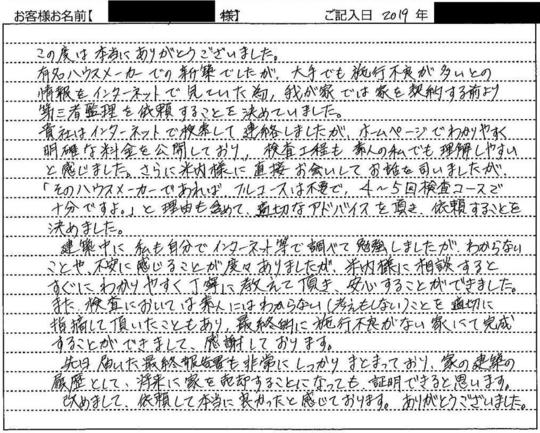 お客様お名前【 様】 ご記入日 2019 年
この度は本当にありがとうございました。
有名ハウスメーカーでの新築でしたが、大手でも施行不良が多いとの
情報をインターネットで見ていた為、我が家では家を契約する前より
第三者監理を依頼することを決めていました。
貴社はインターネットで検索して連絡しましたが、ホームページでわかりやすく
明確な料金を公開しており、検査工程も素人の私でも理解しやすい
と感じました。さらに米内様に直接お会いしてお話を伺いましたが、
「そのハウスメーカーであれば、フルコースは不要で、4～5回検査コースで
十分ですよ。」と理由も含めて、適切なアドバイスを頂き、依頼することを
決めました。
建築中に、私も自分でインターネット等で調べて勉強しましたが、わからない
ことや、不安に感じることが度々ありましたが、米内様に相談すると
すぐにわかりやすく丁寧に教えて頂き、安心することができました。
また、検査においては素人にはわからない(考えもしない)ことを適切に
指摘して頂いたこともあり、最終的に施行不良がない家にて完成
することができまして、感謝しております。
先日届いた最終報告書も非常にしっかりまとまっており、家の建築の
履歴として、将来に家を売却することになっても、証明できると思います。
改めまして、依頼して本当に良かったと感じております。ありがとうございました。